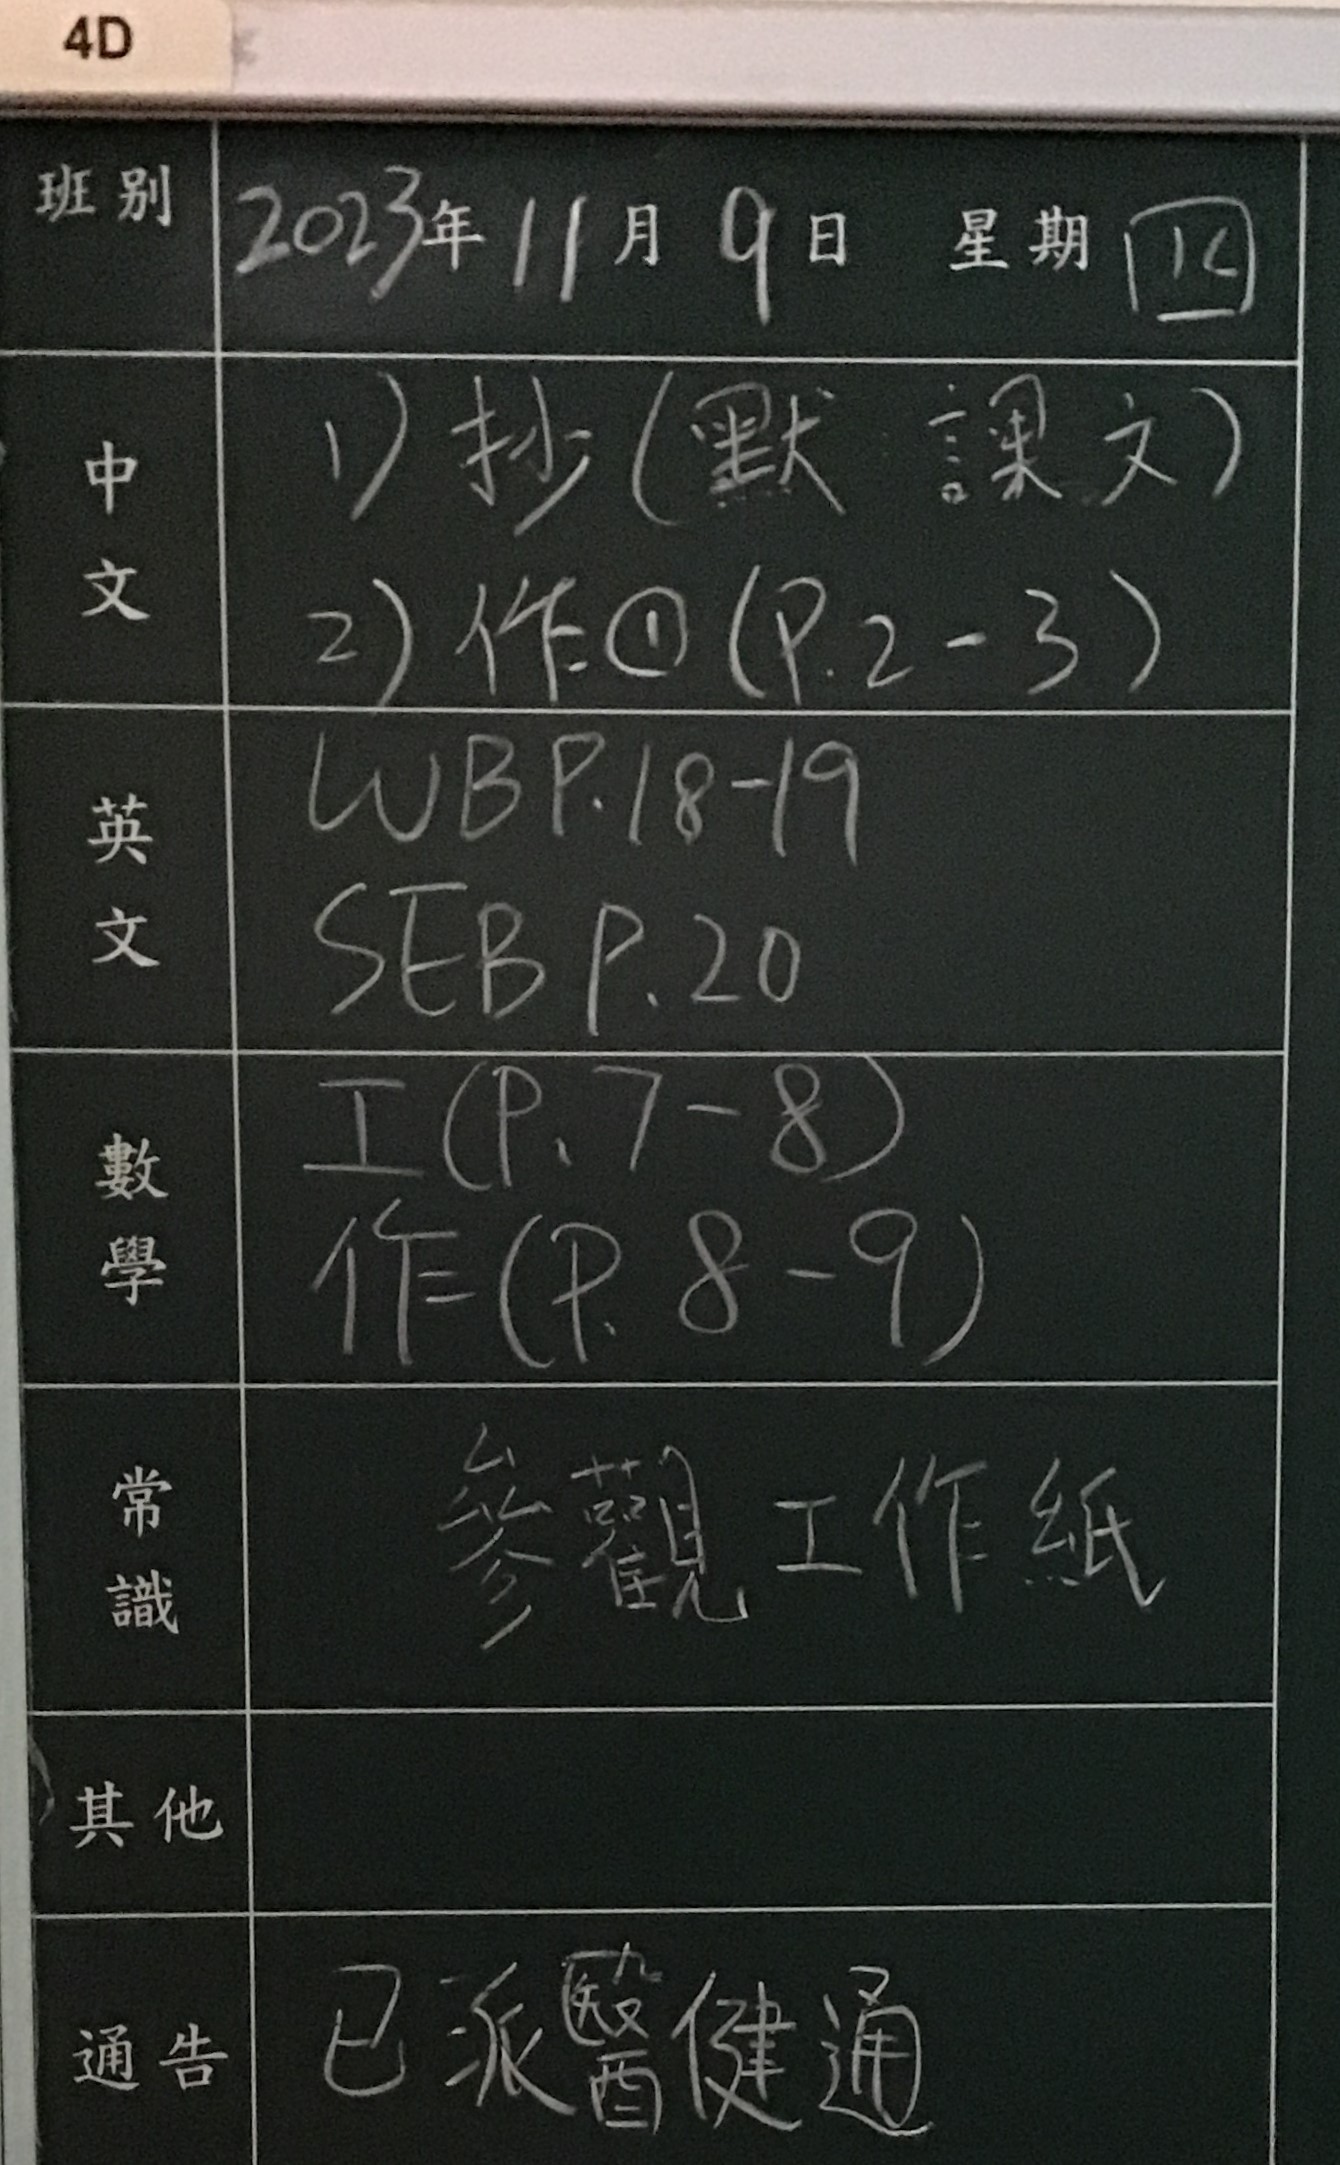 4D
班別 2023年 11月 9日 星期四
中文
1) 抄(默 課文)
2) 作①(P.2-3)
英文
WB P.18-19
SEB P.20
數學
工(P.7-8)
作(P.8-9)
常識
參觀工作紙
其他
通告 已派醫健通